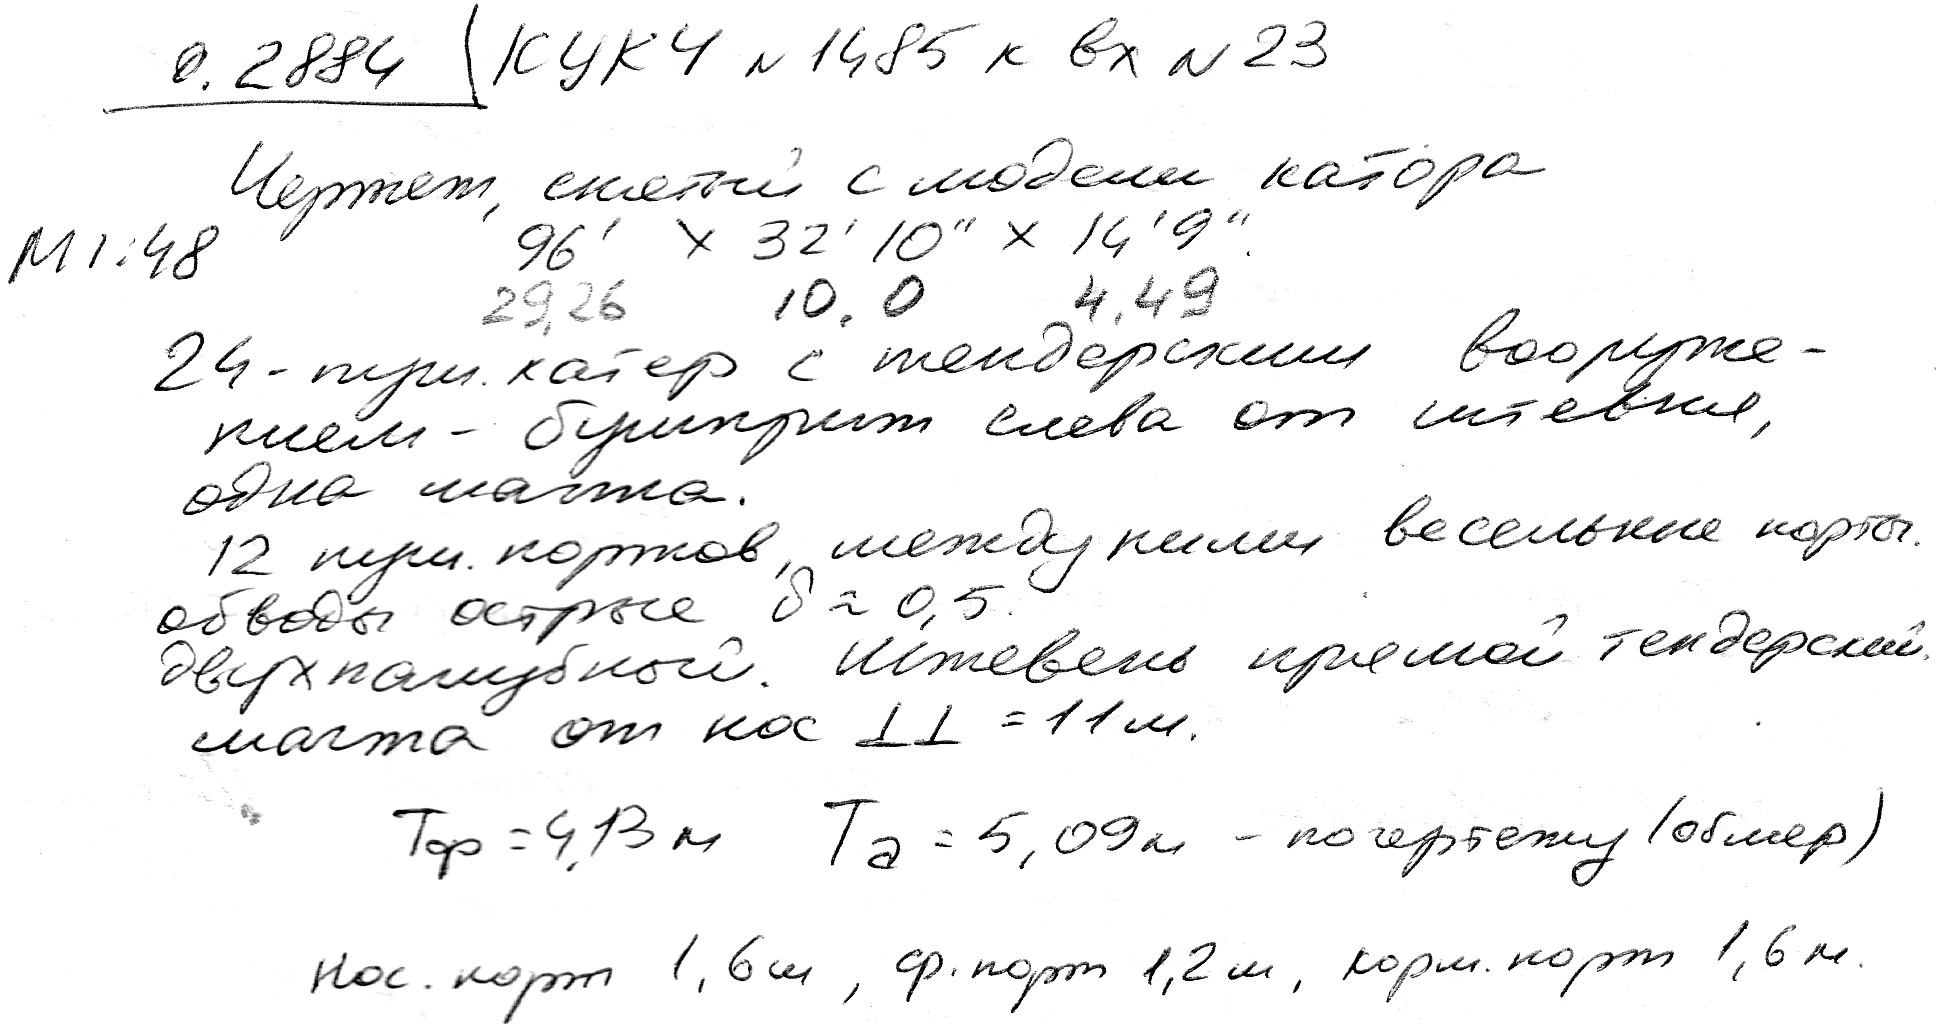 о. 2884 КУКЧ N 1485 к вх N 23
Чертеж, снятый с модели катора
М 1:48 96' х 32' 10" х 14' 9".
29,26 10.0 4.49
24-пуш. катер с тендерским вооруже-
нием - бушприт слева от штевня,
одна мачта.
12 пуш. портов, между ними весельные порты.
обводы острые δ ≈ 0,5.
двухпалубный. Штевень прямой тендерский.
мачта от нос ⊥⊥ = 11 м.
Тф = 4,13 м Та = 5,09 м - по чертежу (обмер)
Нос. порт 1,6 м, ср. порт 1,2 м, корм. порт 1,6 м.